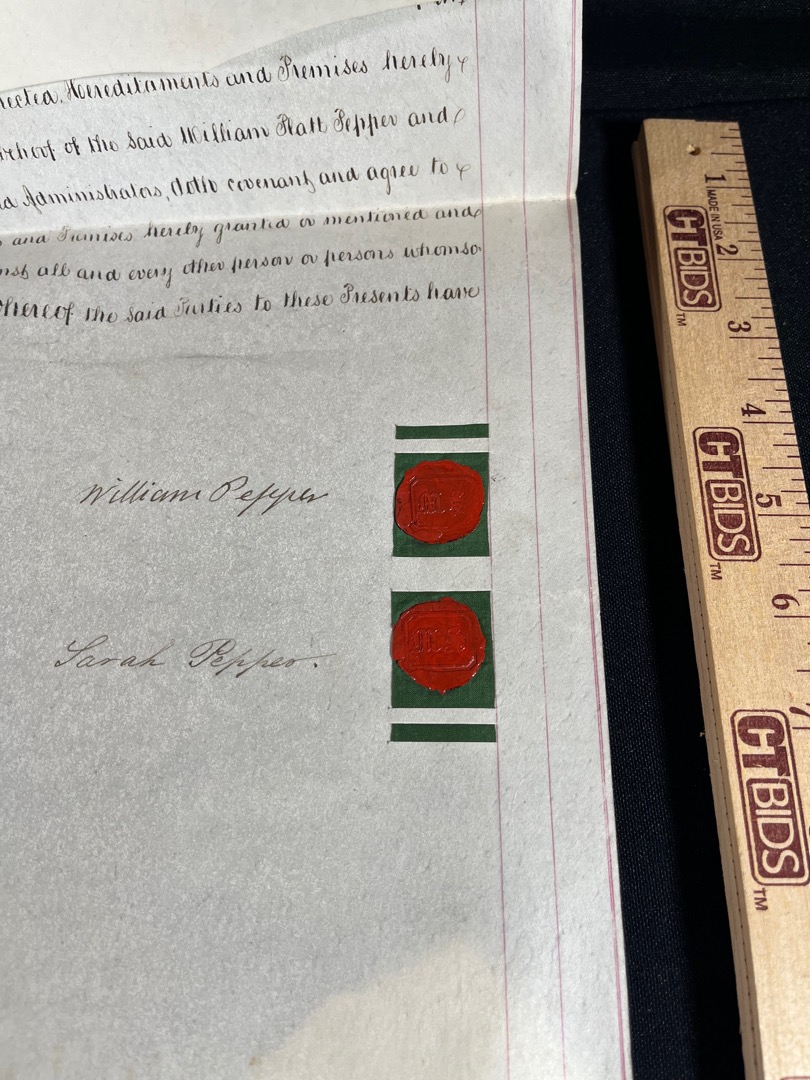 Hereditaments and Premises hereby
of the said William Platt Pepper and
Administrators, doth covenant and agree to
and Premises hereby granted or mentioned and
all and every other person or persons whomso
the said Parties to these Presents have
William Pepper
Sarah Pepper.
1 MADE IN USA 2
CTBIDS TM
3
4
CTBIDS TM
5
6
7
CTBIDS TM